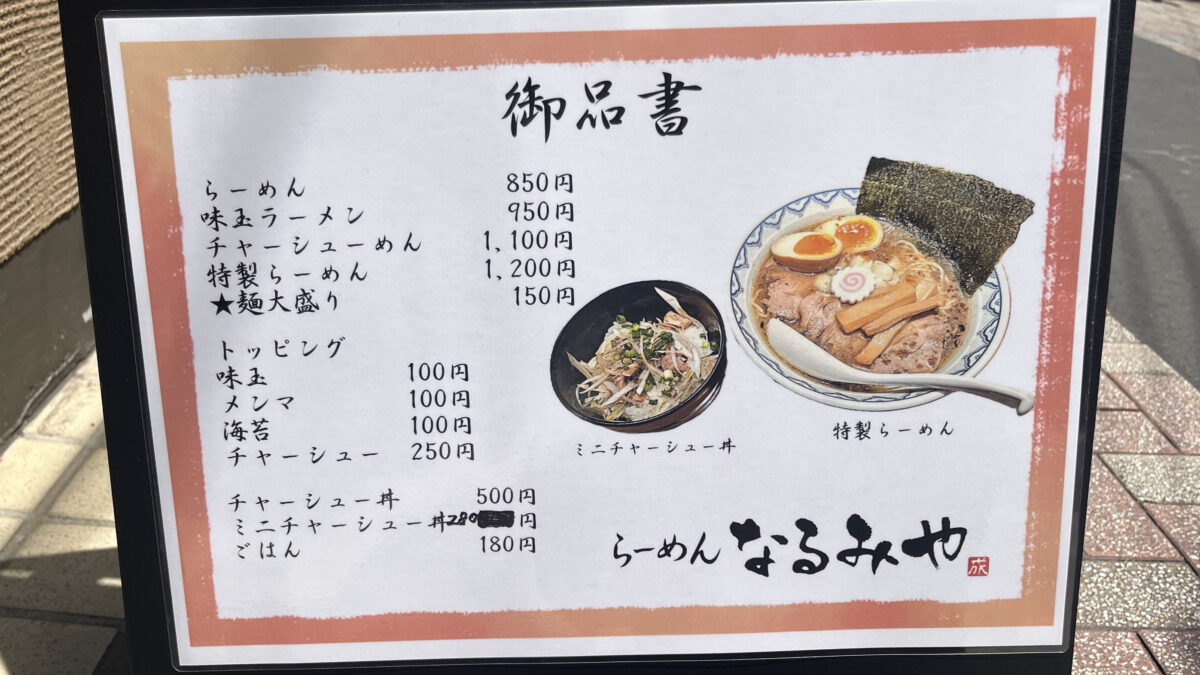 御品書
らーめん 850円
味玉ラーメン 950円
チャーシューめん 1,100円
特製らーめん 1,200円
★麺大盛り 150円
トッピング
味玉 100円
メンマ 100円
海苔 100円
チャーシュー 250円
チャーシュー丼 500円
ミニチャーシュー丼 280円
ごはん 180円
ミニチャーシュー丼
特製らーめん
らーめん なるみや
成